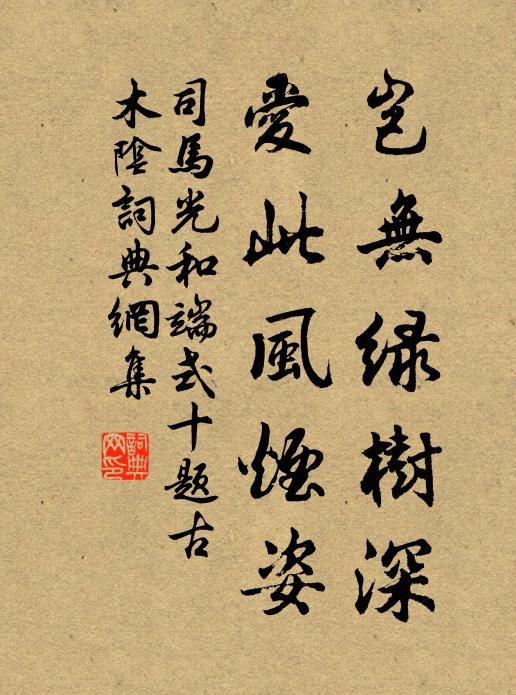 豈無緑樹深
愛此風煙姿
司馬光和端式十题古
木陰詞典網集
詞典
网印